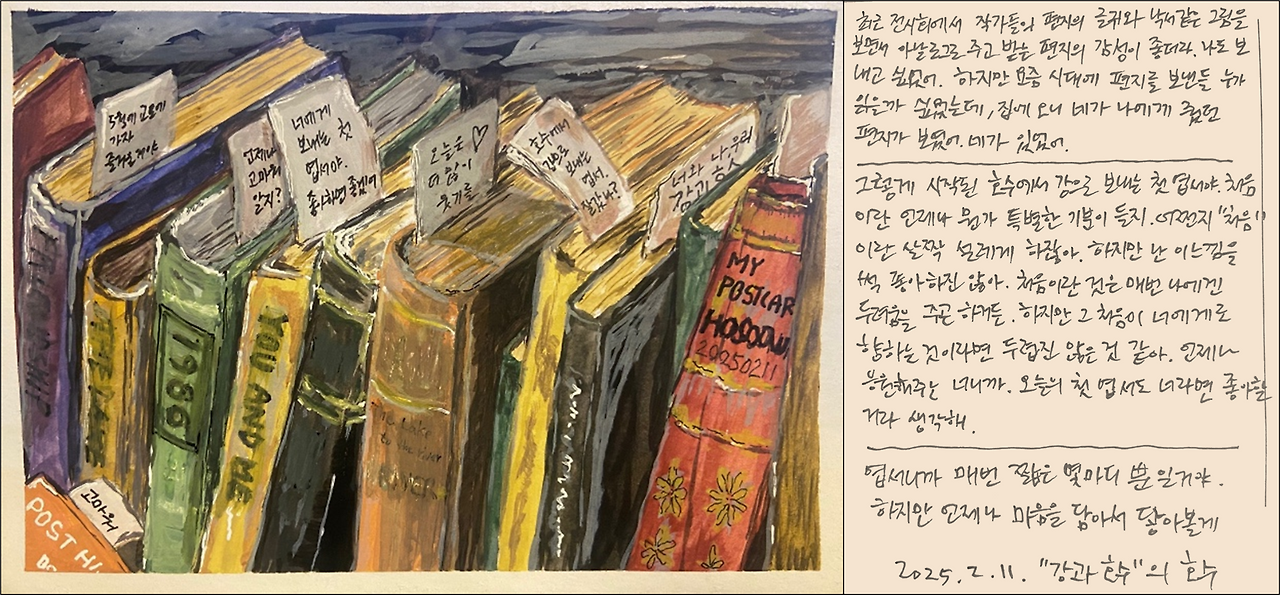 5월에 고요에
가자
즐거울거야
언제나
고마워
알지?
너에게
보내는 첫
엽서야.
좋아하면 좋겠어
오늘은 ♡
더 많이
웃기를
호수에서
강으로
보내는
엽서.
너와 나 우리
강과 호수
THE LAKE
1986
YOU AND ME
The Lake
to the river
River
MY
POSTCAR
20250211
고마워
POST HA
최근 전시회에서 작가들의 편지의 글귀와 낙서같은 그림을
보면서 아날로그로 주고 받는 편지의 감성이 좋더라. 나도 보
내고 싶었어. 하지만 요즘 시대에 편지를 보낸들 누가
읽을까 싶었는데, 집에 오니 네가 나에게 줬던
편지가 보였어. 네가 있었어.
그렇게 시작된 호수에서 강으로 보내는 첫 엽서야. 처음
이란 언제나 뭔가 특별한 기분이 들지. 어쩐지 "처음"
이란 살짝 설레게 하잖아. 하지만 난 이 느낌을
썩 좋아하진 않아. 처음이란 것은 매번 나에겐
두려움을 주곤 하거든. 하지만 그 처음이 너에게로
향하는 것이라면 두렵진 않은 것 같아. 언제나
응원해주는 너니까. 오늘의 첫 엽서도 너라면 좋아할
거라 생각해.
엽서니까 매번 짧은 몇마디 뿐일거야.
하지만 언제나 마음을 담아서 닿아볼게
2025.2.11. "강과 호수"의 호수